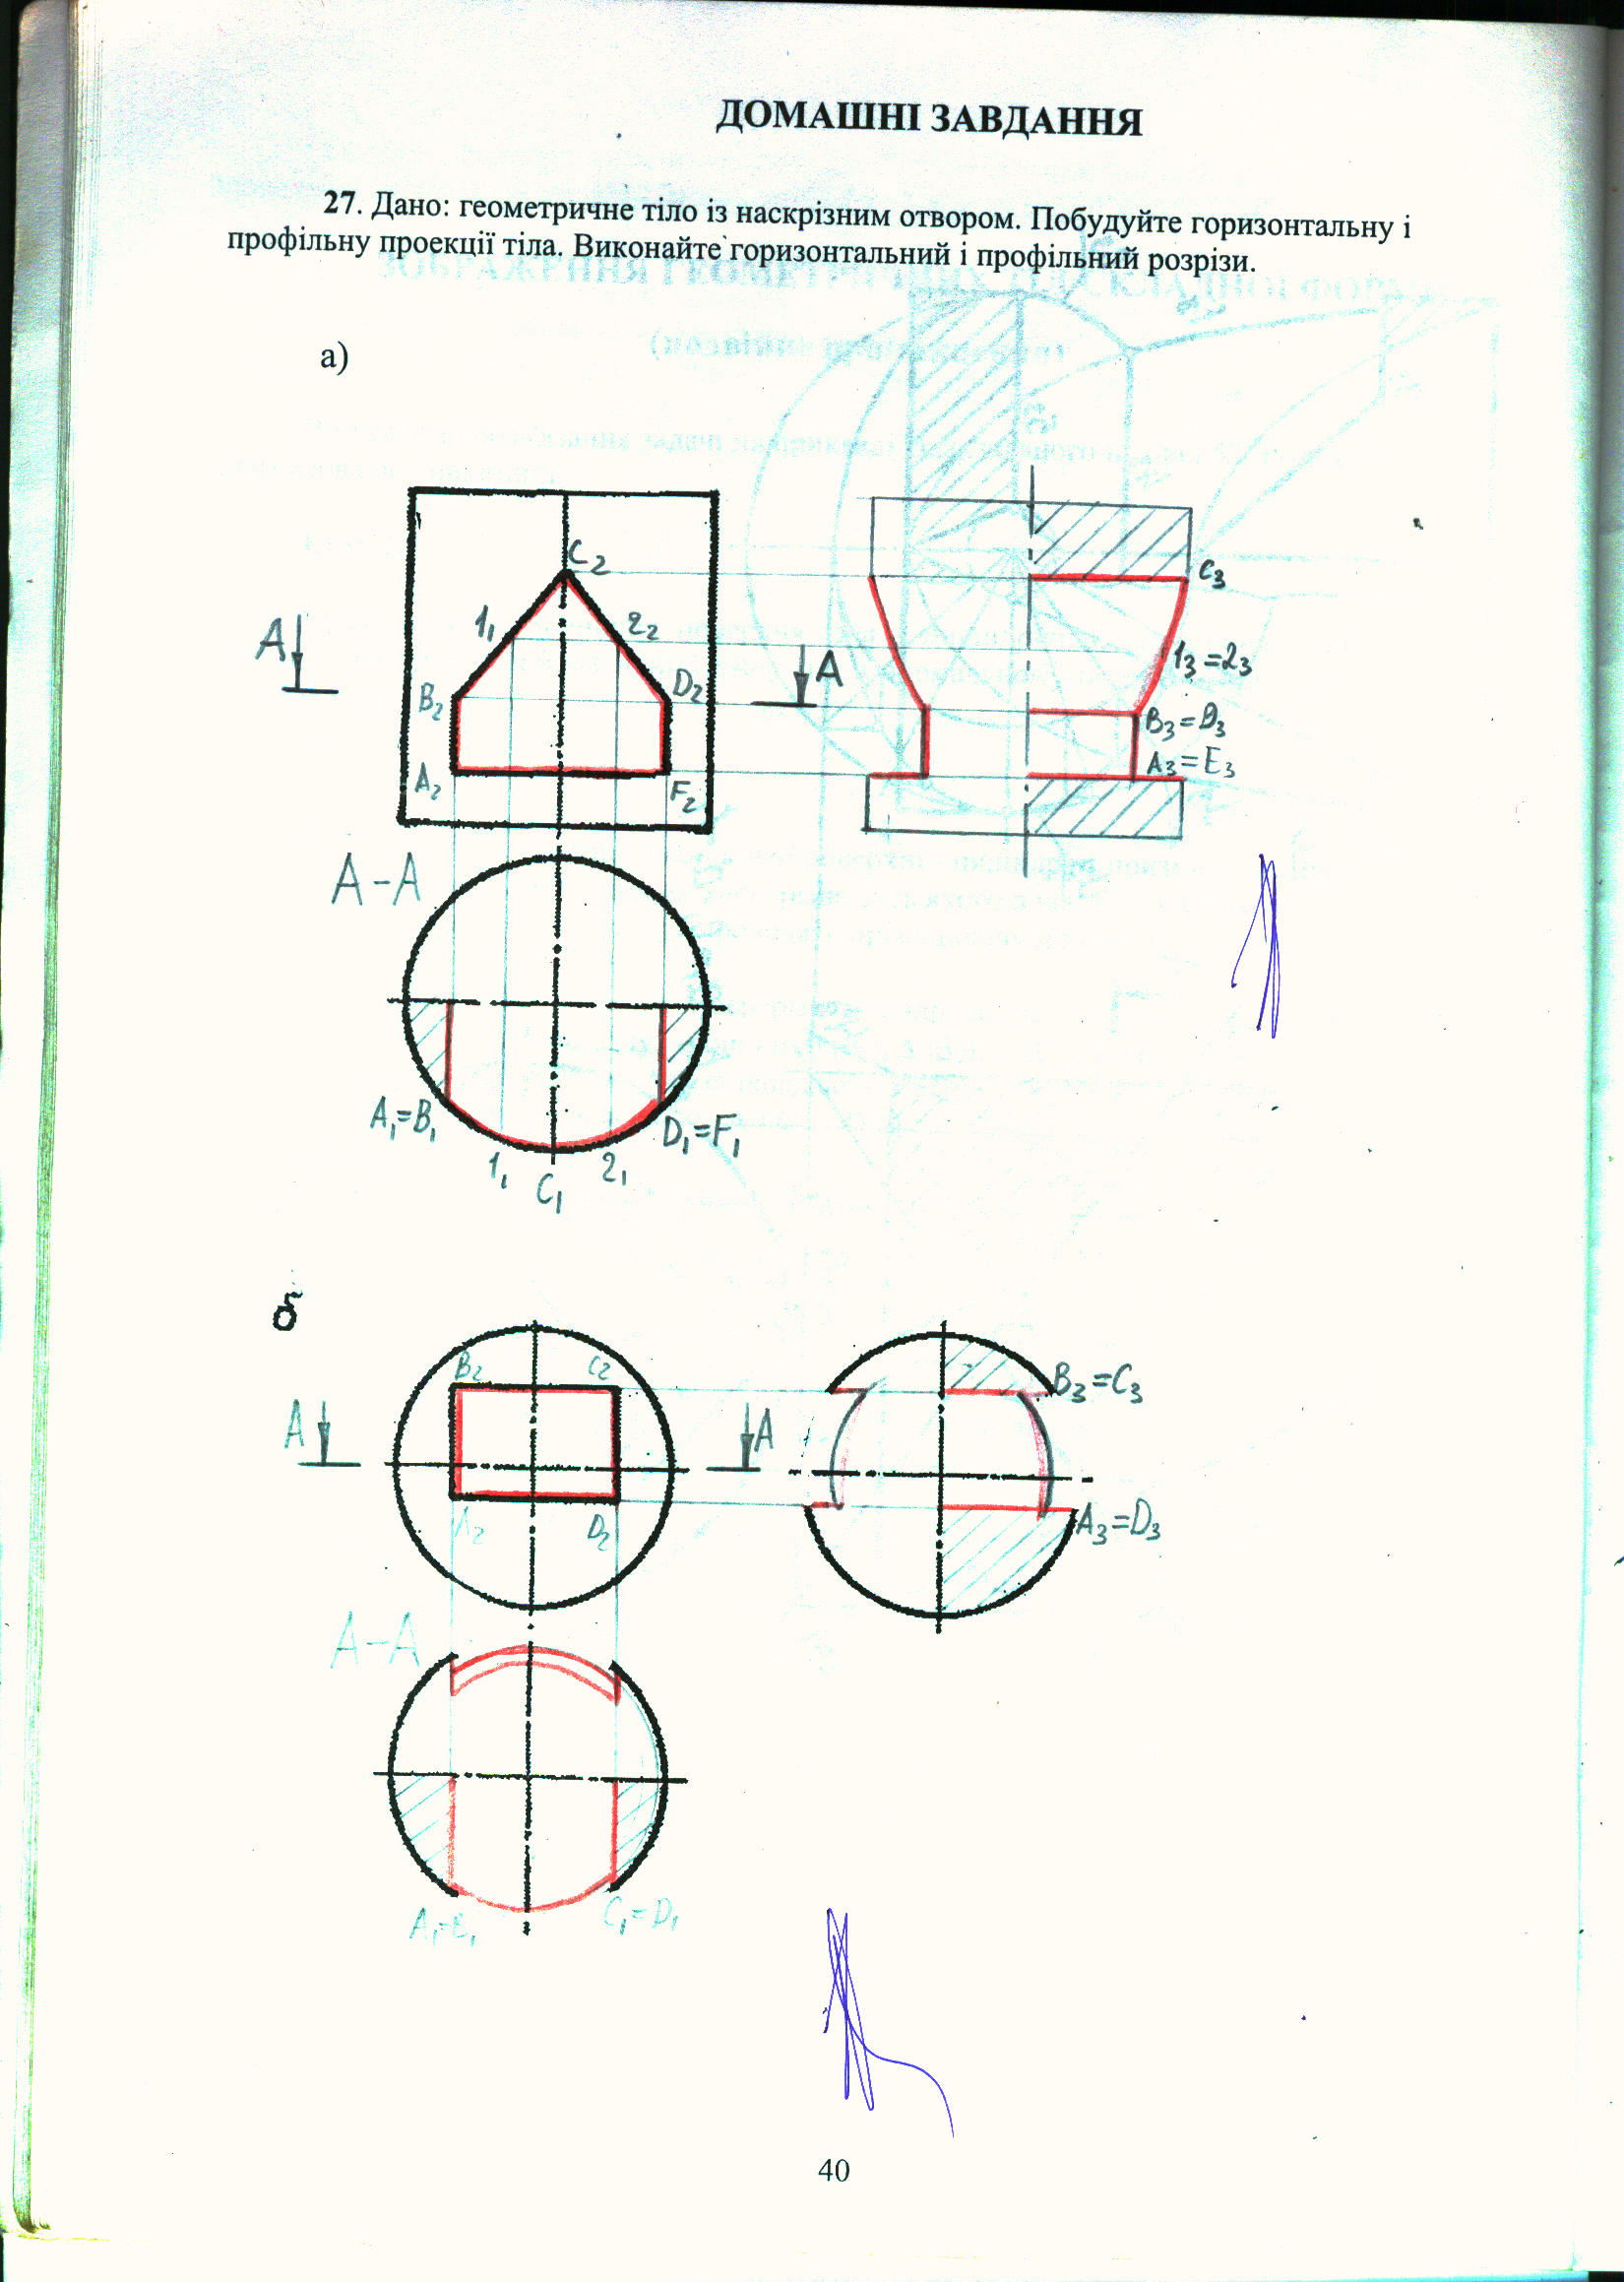 ДОМАШНІ ЗАВДАННЯ
27. Дано: геометричне тіло із наскрізним отвором. Побудуйте горизонтальну і
профільну проекції тіла. Виконайте горизонтальний і профільний розрізи.
а)
C₂
C₃
1₁ 2₂
A A
1₃=2₃
B₂ D₂
B₃=D₃
A₂ F₂
A₃=E₃
A-A
A₁=B₁ D₁=F₁
1₁ C₁ 2₁
б
B₂ C₂
B₃=C₃
A A
A₂ D₂
A₃=D₃
A-A
C₁=D₁
40